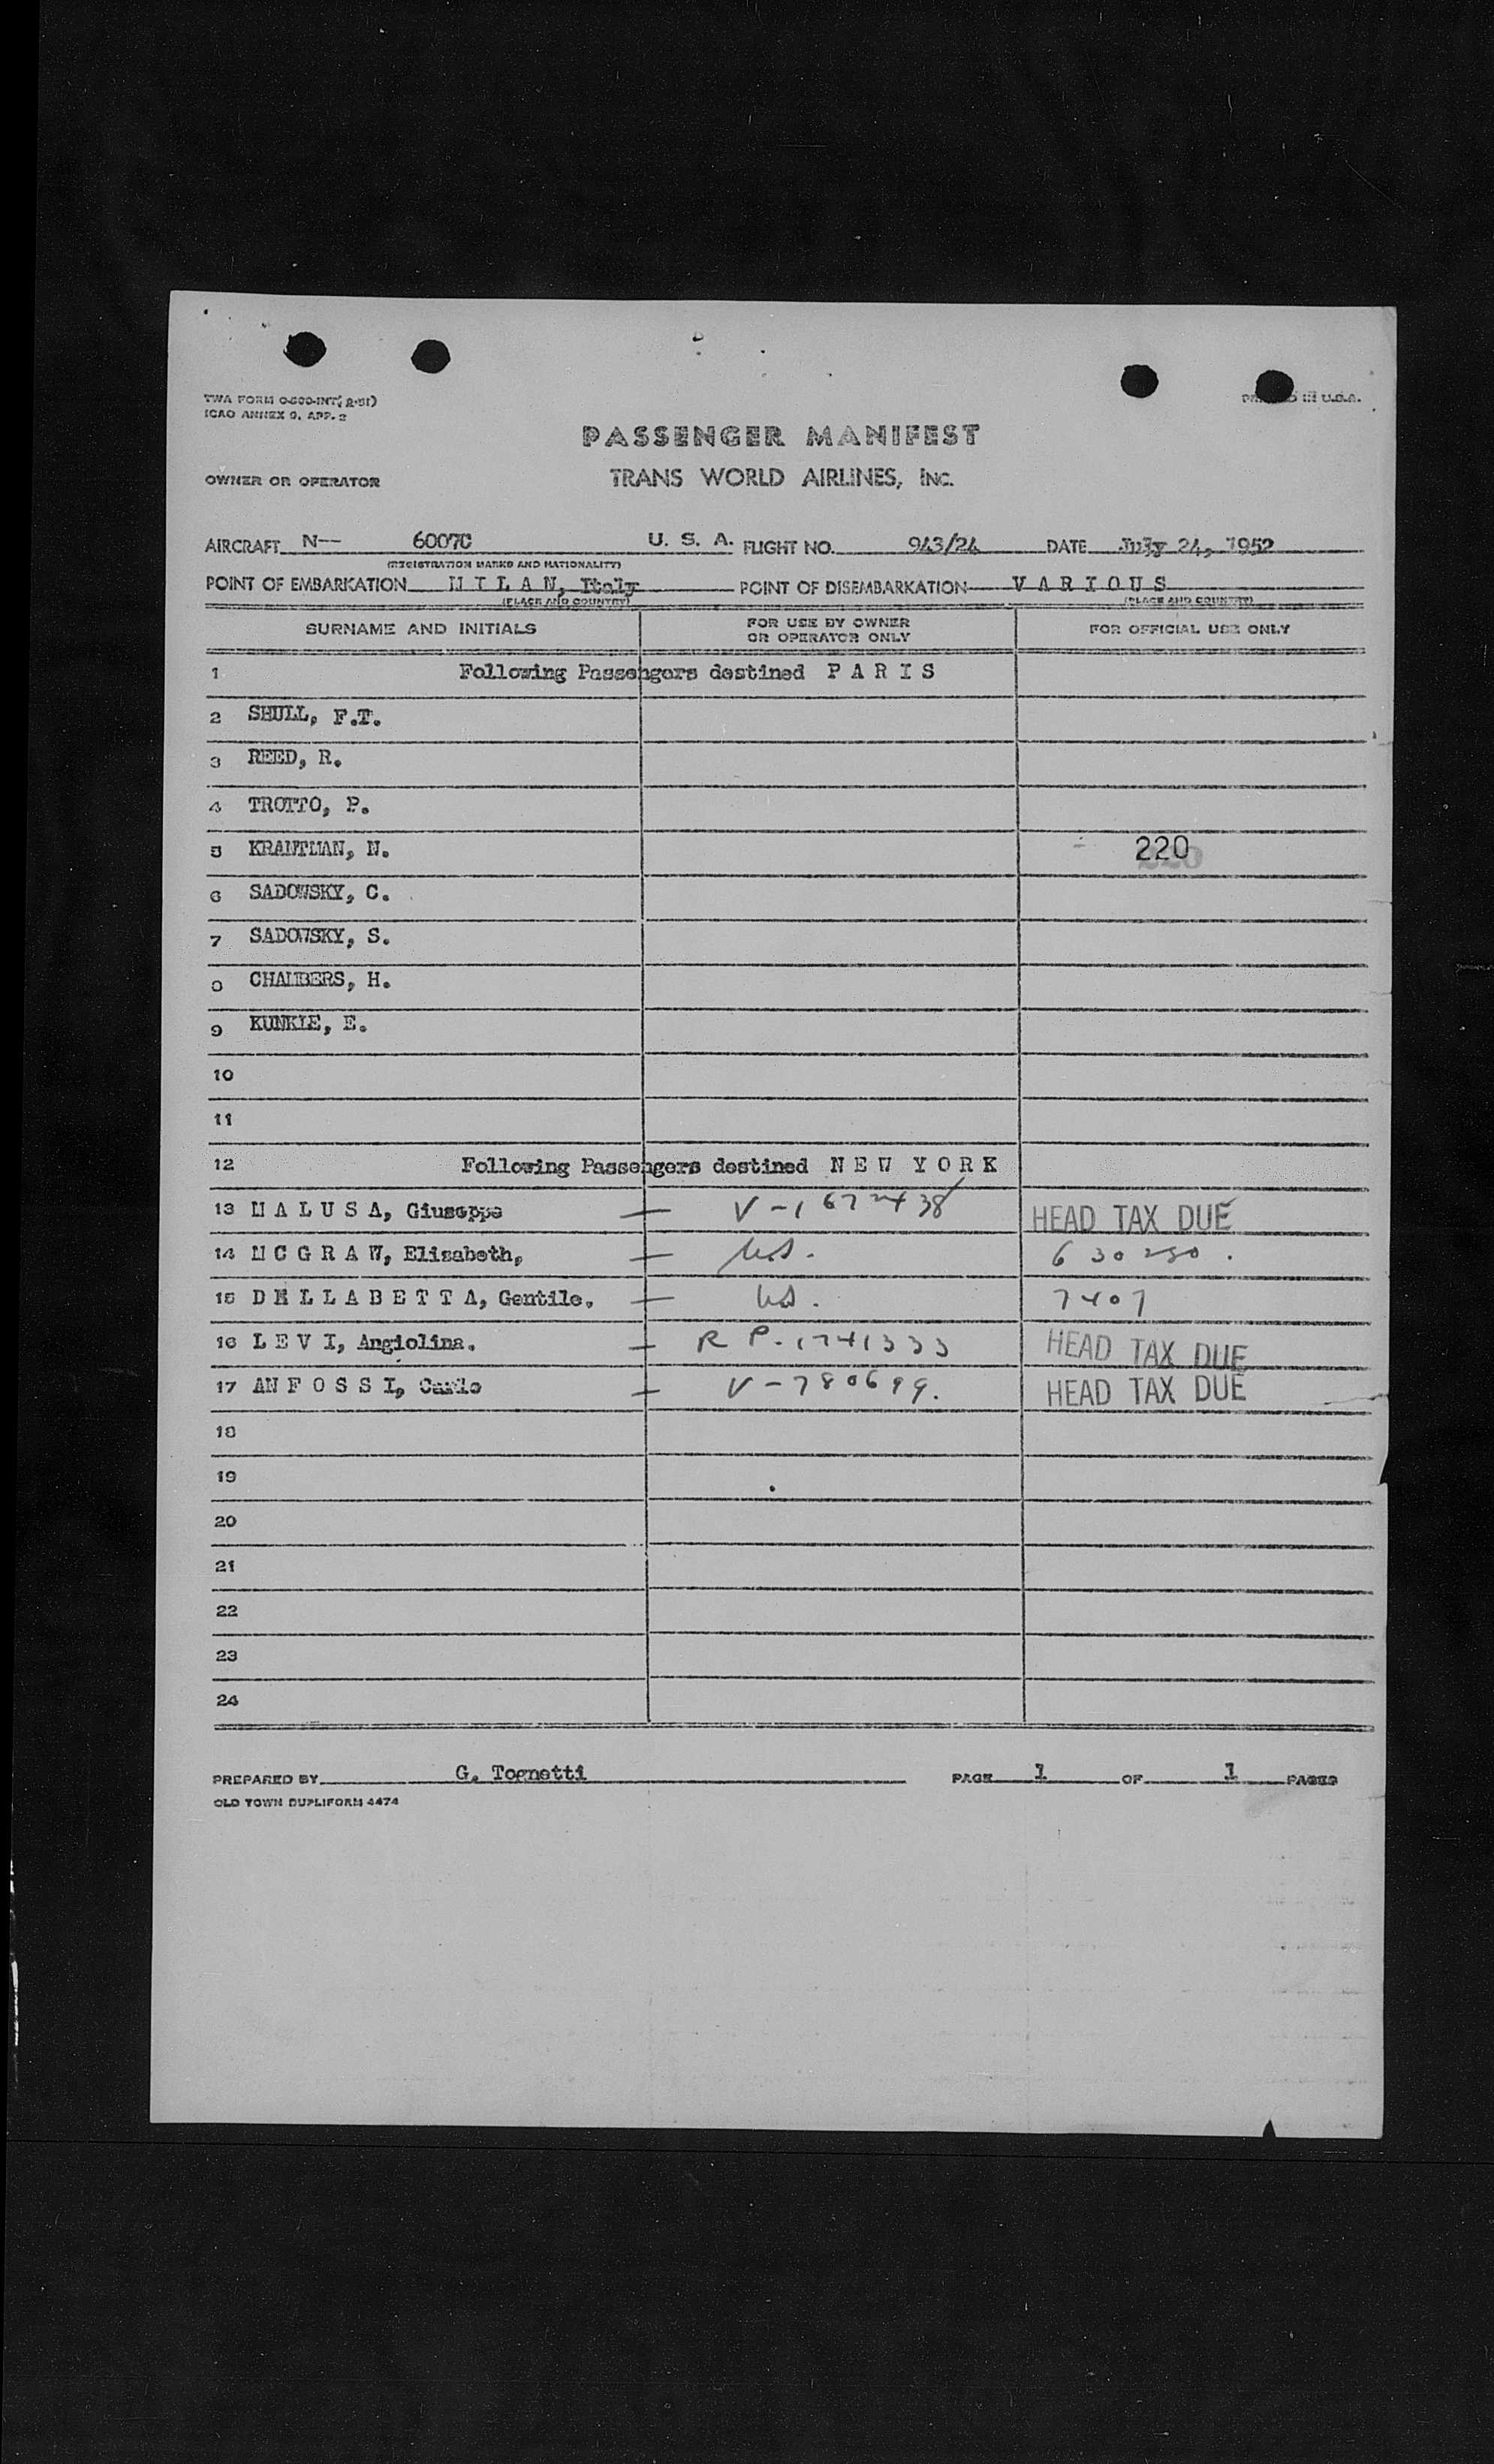 TWA FORM O-500-INT( 2-51)
ICAO ANNEX 9, APP. 2
PRINTED IN U.S.A.
PASSENGER MANIFEST
OWNER OR OPERATOR TRANS WORLD AIRLINES, INC.
AIRCRAFT N-- 6007C U. S. A. FLIGHT NO. 943/24 DATE July 24, 1952
(REGISTRATION MARKS AND NATIONALITY)
POINT OF EMBARKATION M I L A N, Italy POINT OF DISEMBARKATION V A R I O U S
(PLACE AND COUNTRY) (PLACE AND COUNTRY)
SURNAME AND INITIALS FOR USE BY OWNER OR OPERATOR ONLY FOR OFFICIAL USE ONLY
1 Following Passengers destined P A R I S
2 SHULL, F.T.
3 REED, R.
4 TROTTO, P.
5 KRANTMAN, N. 220
6 SADOWSKY, C.
7 SADOWSKY, S.
8 CHAMBERS, H.
9 KUNKLE, E.
10
11
12 Following Passengers destined N E W Y O R K
13 M A L U S A, Giuseppe — V-1672438 HEAD TAX DUE
14 M C G R A W, Elizabeth, — US. 630250.
15 D E L L A B E T T A, Gentile. — US. 7407
16 L E V I, Angiolina. — R P-1741333 HEAD TAX DUE
17 AN F O S S I, Carlo — V-780699. HEAD TAX DUE
18
19
20
21
22
23
24
PREPARED BY G. Tognetti PAGE 1 OF 1 PAGES
OLD TOWN DUPLIFORM 4474